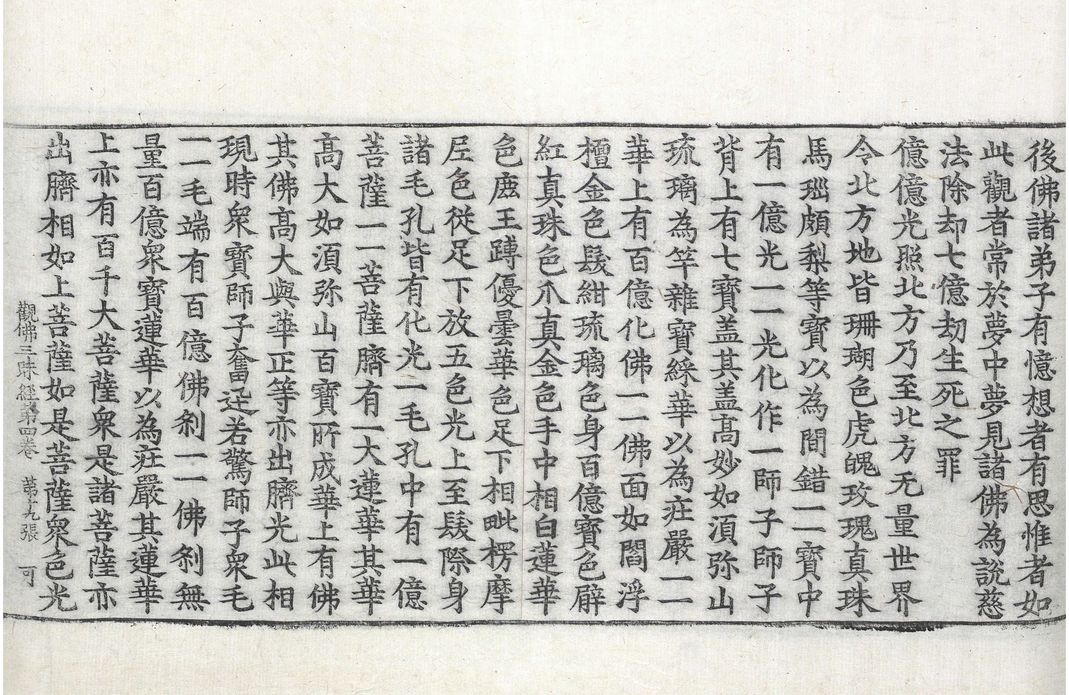 後佛諸弟子有憶想者有思惟者如
此觀者常於夢中夢見諸佛為說慈
法除却七億劫生死之罪
億億光照北方乃至北方无量世界
令北方地皆珊瑚色虎魄玫瑰真珠
馬瑙頗梨等寶以為間錯一一寶中
有一億光一一光化作一師子師子
背上有七寶盖其盖高妙如須弥山
琉璃為竿雜寶綵華以為庄嚴一一
華上有百億化佛一一佛面如閻浮
檀金色髮紺琉璃色身百億寶色脣
紅真珠色爪真金色手中相白蓮華
色鹿王蹲優曇華色足下相毗楞摩
尼色從足下放五色光上至髮際身
諸毛孔皆有化光一毛孔中有一億
菩薩一一菩薩臍有一大蓮華其華
高大如須弥山百寶所成華上有佛
其佛高大與華正等亦出臍光此相
現時衆寶師子奮迅若驚師子衆毛
一一毛端有百億佛剎一一佛剎無
量百億衆寶蓮華以為庄嚴其蓮華
上亦有百千大菩薩衆是諸菩薩亦
出臍相如上菩薩如是菩薩衆色光
觀佛三昧經第四卷 第十九張 可